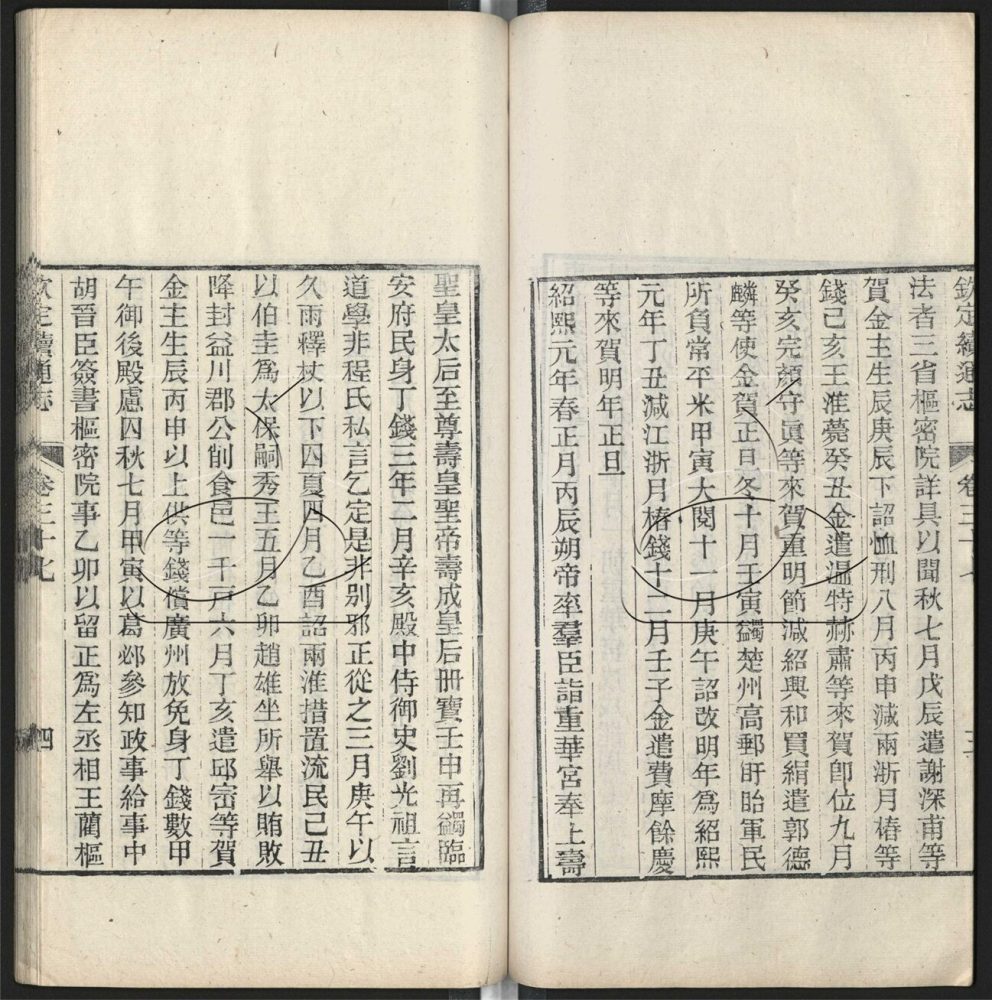 欽定續通志 卷三十七
法者三省樞密院詳具以聞秋七月戊辰遣謝深甫等
賀金主生辰庚辰下詔恤刑八月丙申減兩浙月樁等
錢己亥王淮薨癸丑金遣溫特赫肅等來賀卽位九月
癸亥完顏守眞等來賀重明節減紹興和買絹遣郭德
麟等使金賀正旦冬十月壬寅蠲楚州高郵盱眙軍民
所負常平米甲寅大閱十一月庚午詔改明年爲紹熙
元年丁丑減江浙月樁錢十二月壬子金遣費摩餘慶
等來賀明年正旦
紹熙元年春正月丙辰朔帝率羣臣詣重華宮奉上壽
聖皇太后至尊壽皇聖帝壽成皇后冊寶壬申再蠲臨
安府民身丁錢三年二月辛亥殿中侍御史劉光祖言
道學非程氏私言乞定是非別邪正從之三月庚午以
久雨釋杖以下囚夏四月乙酉詔兩淮措置流民己丑
以伯圭爲太保嗣秀王五月乙卯趙雄坐所舉以賄敗
降封益川郡公削食邑一千戶六月丁亥遣邱崈等賀
金主生辰丙申以上供等錢償廣州放免身丁錢數甲
午御後殿慮囚秋七月甲寅以葛邲參知政事給事中
胡晉臣簽書樞密院事乙卯以留正爲左丞相王藺樞
欽定續通志 卷三十七 四